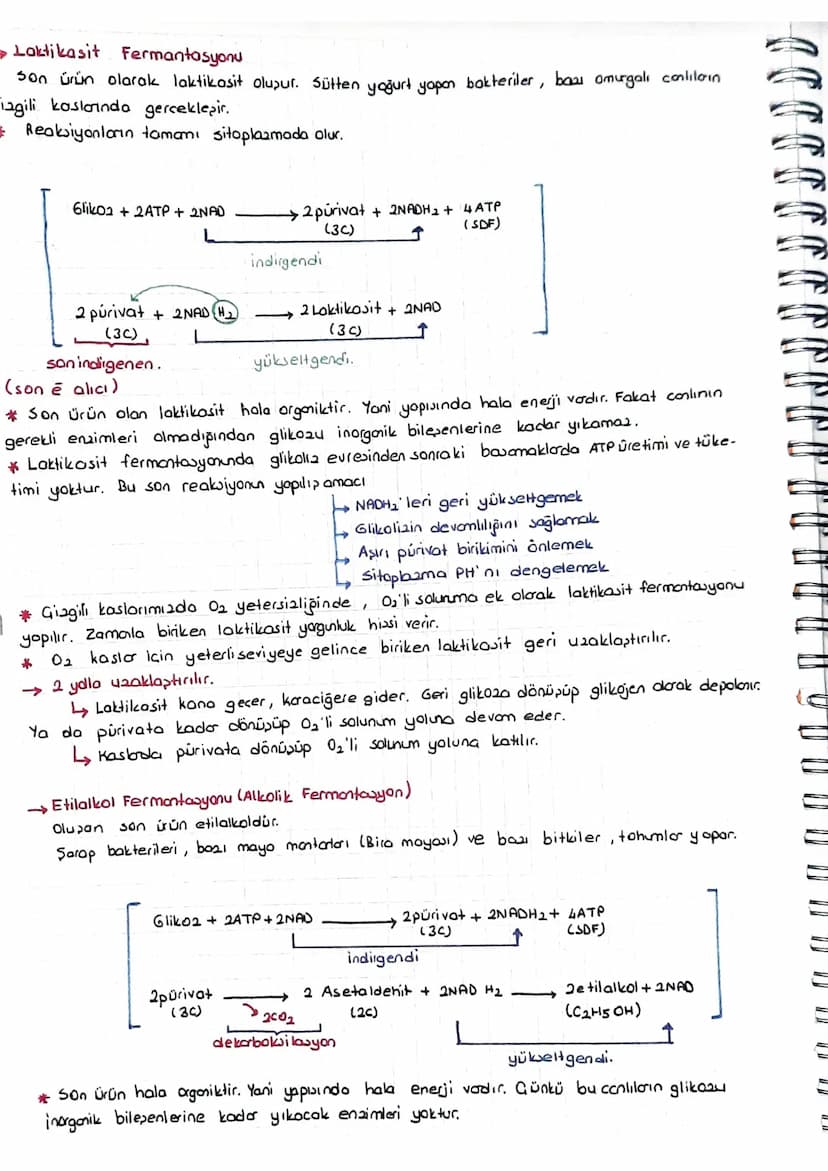 → Laktikasit Fermantasyonu
Son ürün olarak laktikasit oluşur. Sütten yoğurt yapan bakteriler, bazı omurgalı canlıların
izgili kaslarında gerçekleşir.
* Reaksiyonların tamamı sitoplazmada olur.
Glikoz + 2ATP + 2NAD → 2 pürivat + 2NADH2 + 4ATP
(3C) (SDF)
indirgendi
2 pürivat + 2NAD H2 → 2 Laktikasit + 2NAD
(3C) (3C)
son indirgenen. yükseltgendi.
(son ē alıcı)
* Son ürün olan laktikasit hala organiktir. Yani yapısında hala enerji vardır. Fakat canlının
gerekli enzimleri olmadığından glikozu inorganik bileşenlerine kadar yıkamaz.
* Laktikasit fermantasyonunda glikoliz evresinden sonraki basamaklarda ATP üretimi ve tüke-
timi yoktur. Bu son reaksiyonun yapılış amacı
↳ NADH2'leri geri yükseltgemek
↳ Glikolizin devamlılığını sağlamak
↳ Aşırı pürivat birikimini önlemek
↳ Sitoplazma PH'nı dengelemek
* Çizgili kaslarımızda O2 yetersizliğinde, O2'li solunuma ek olarak laktikasit fermantasyonu
yapılır. Zamanla biriken laktikasit yorgunluk hissi verir.
* O2 kaslar için yeterli seviyeye gelince biriken laktikasit geri uzaklaştırılır.
→ 2 yolla uzaklaştırılır.
↳ Laktikasit kana geçer, karaciğere gider. Geri glikoza dönüşüp glikojen olarak depolanır.
Ya da pürivata kadar dönüşüp O2'li solunum yoluna devam eder.
↳ Kaslarda pürivata dönüşüp O2'li solunum yoluna katılır.
→ Etilalkol Fermantasyonu (Alkolik Fermantasyon)
Oluşan son ürün etilalkoldür.
Şarap bakterileri, bazı maya mantarları (Bira mayası) ve bazı bitkiler, tohumlar yapar.
Glikoz + 2ATP + 2NAD → 2pürivat + 2NADH2 + 4ATP
(3C) (SDF)
indirgendi
2pürivat → 2 Asetaldehit + 2NAD H2 → 2etilalkol + 2NAD
(3C) 2CO2 (2C) (C2H5OH)
dekarboksilasyon
yükseltgendi.
* Son ürün hala organiktir. Yani yapısında hala enerji vardır. Çünkü bu canlıların glikozu
inorganik bileşenlerine kadar yıkacak enzimleri yoktur.